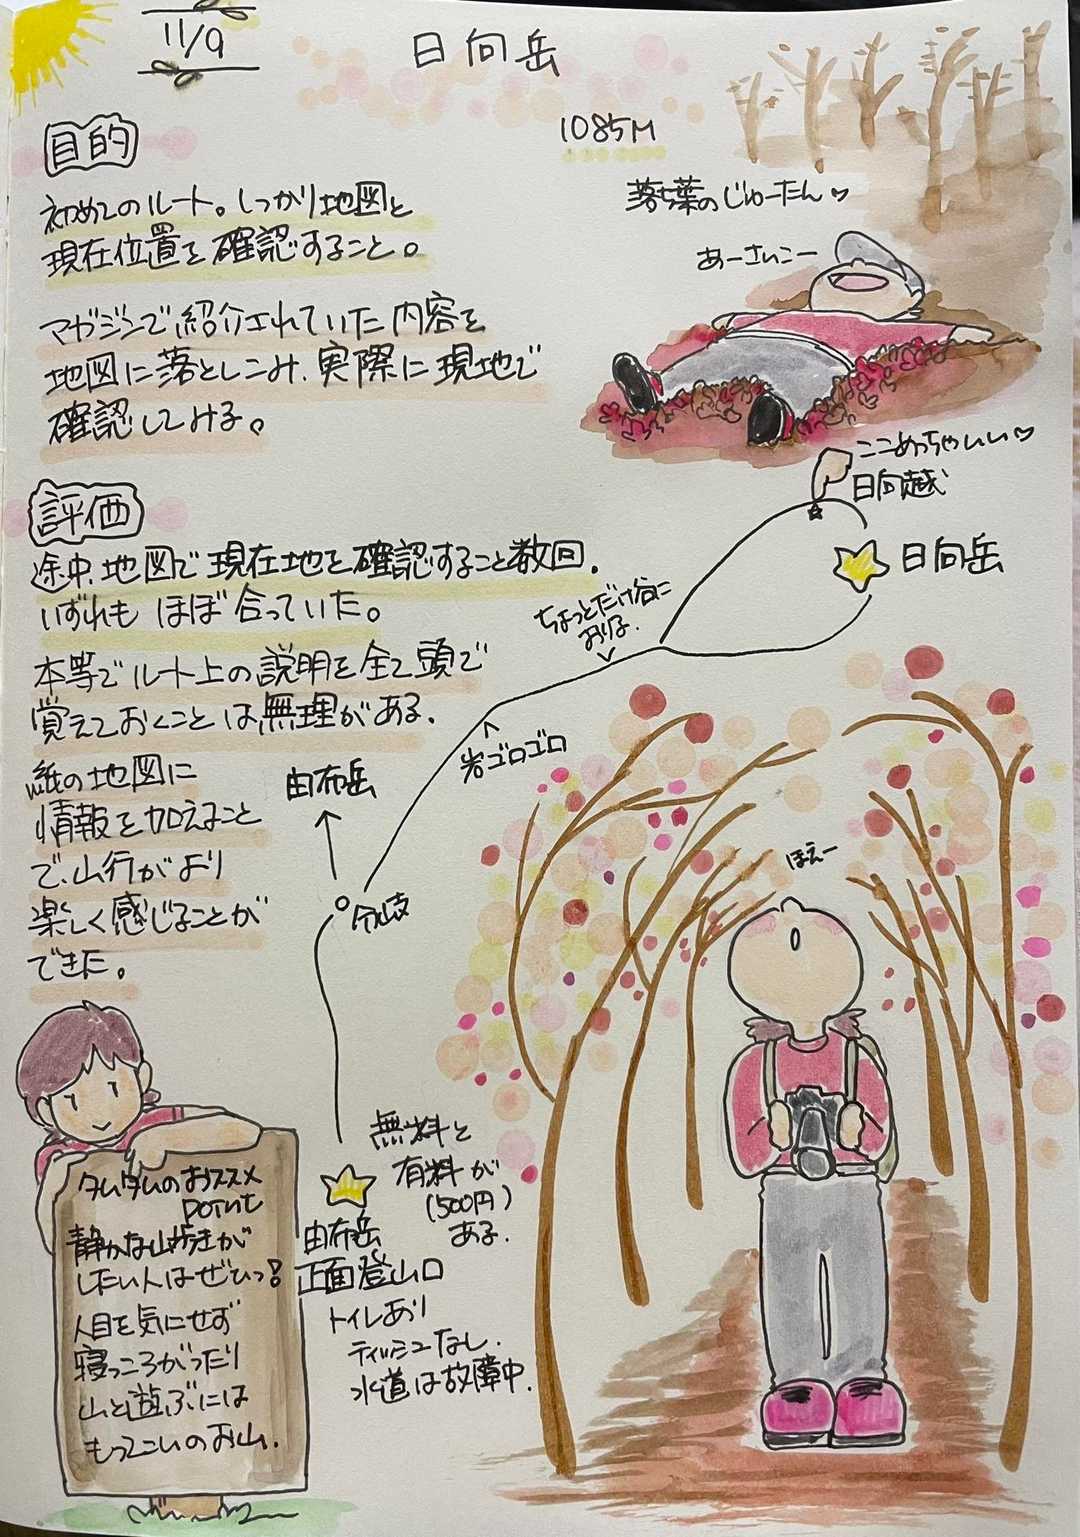 11/9
日向岳
1085M
目的
初めてのルート。しっかり地図と
現在位置を確認すること。
マガジンで紹介されていた内容を
地図に落としこみ、実際に現地で
確認してみる。
落ち葉のじゅーたん♡
あーさいこー
評価
途中、地図で現在地を確認すること数回。
いずれもほぼ合っていた。
本等でルート上の説明を全て頭で
覚えておくことは無理がある。
紙の地図に
情報を加えること
で、山行がより
楽しく感じることが
できた。
ここめっちゃいい♡
日向越
日向岳
ちょっとだけ谷に
おりる。
岩ゴロゴロ
由布岳
分岐
ほえー
無料と
有料が
(500円)
ある。
由布岳
正面登山口
トイレあり
ティッシュなし。
水道は故障中。
タムタムのおススメ
POINT
静かな山歩きが
したい人はぜひっ!
人目を気にせず
寝っころがったり
山と遊ぶには
もってこいのお山。